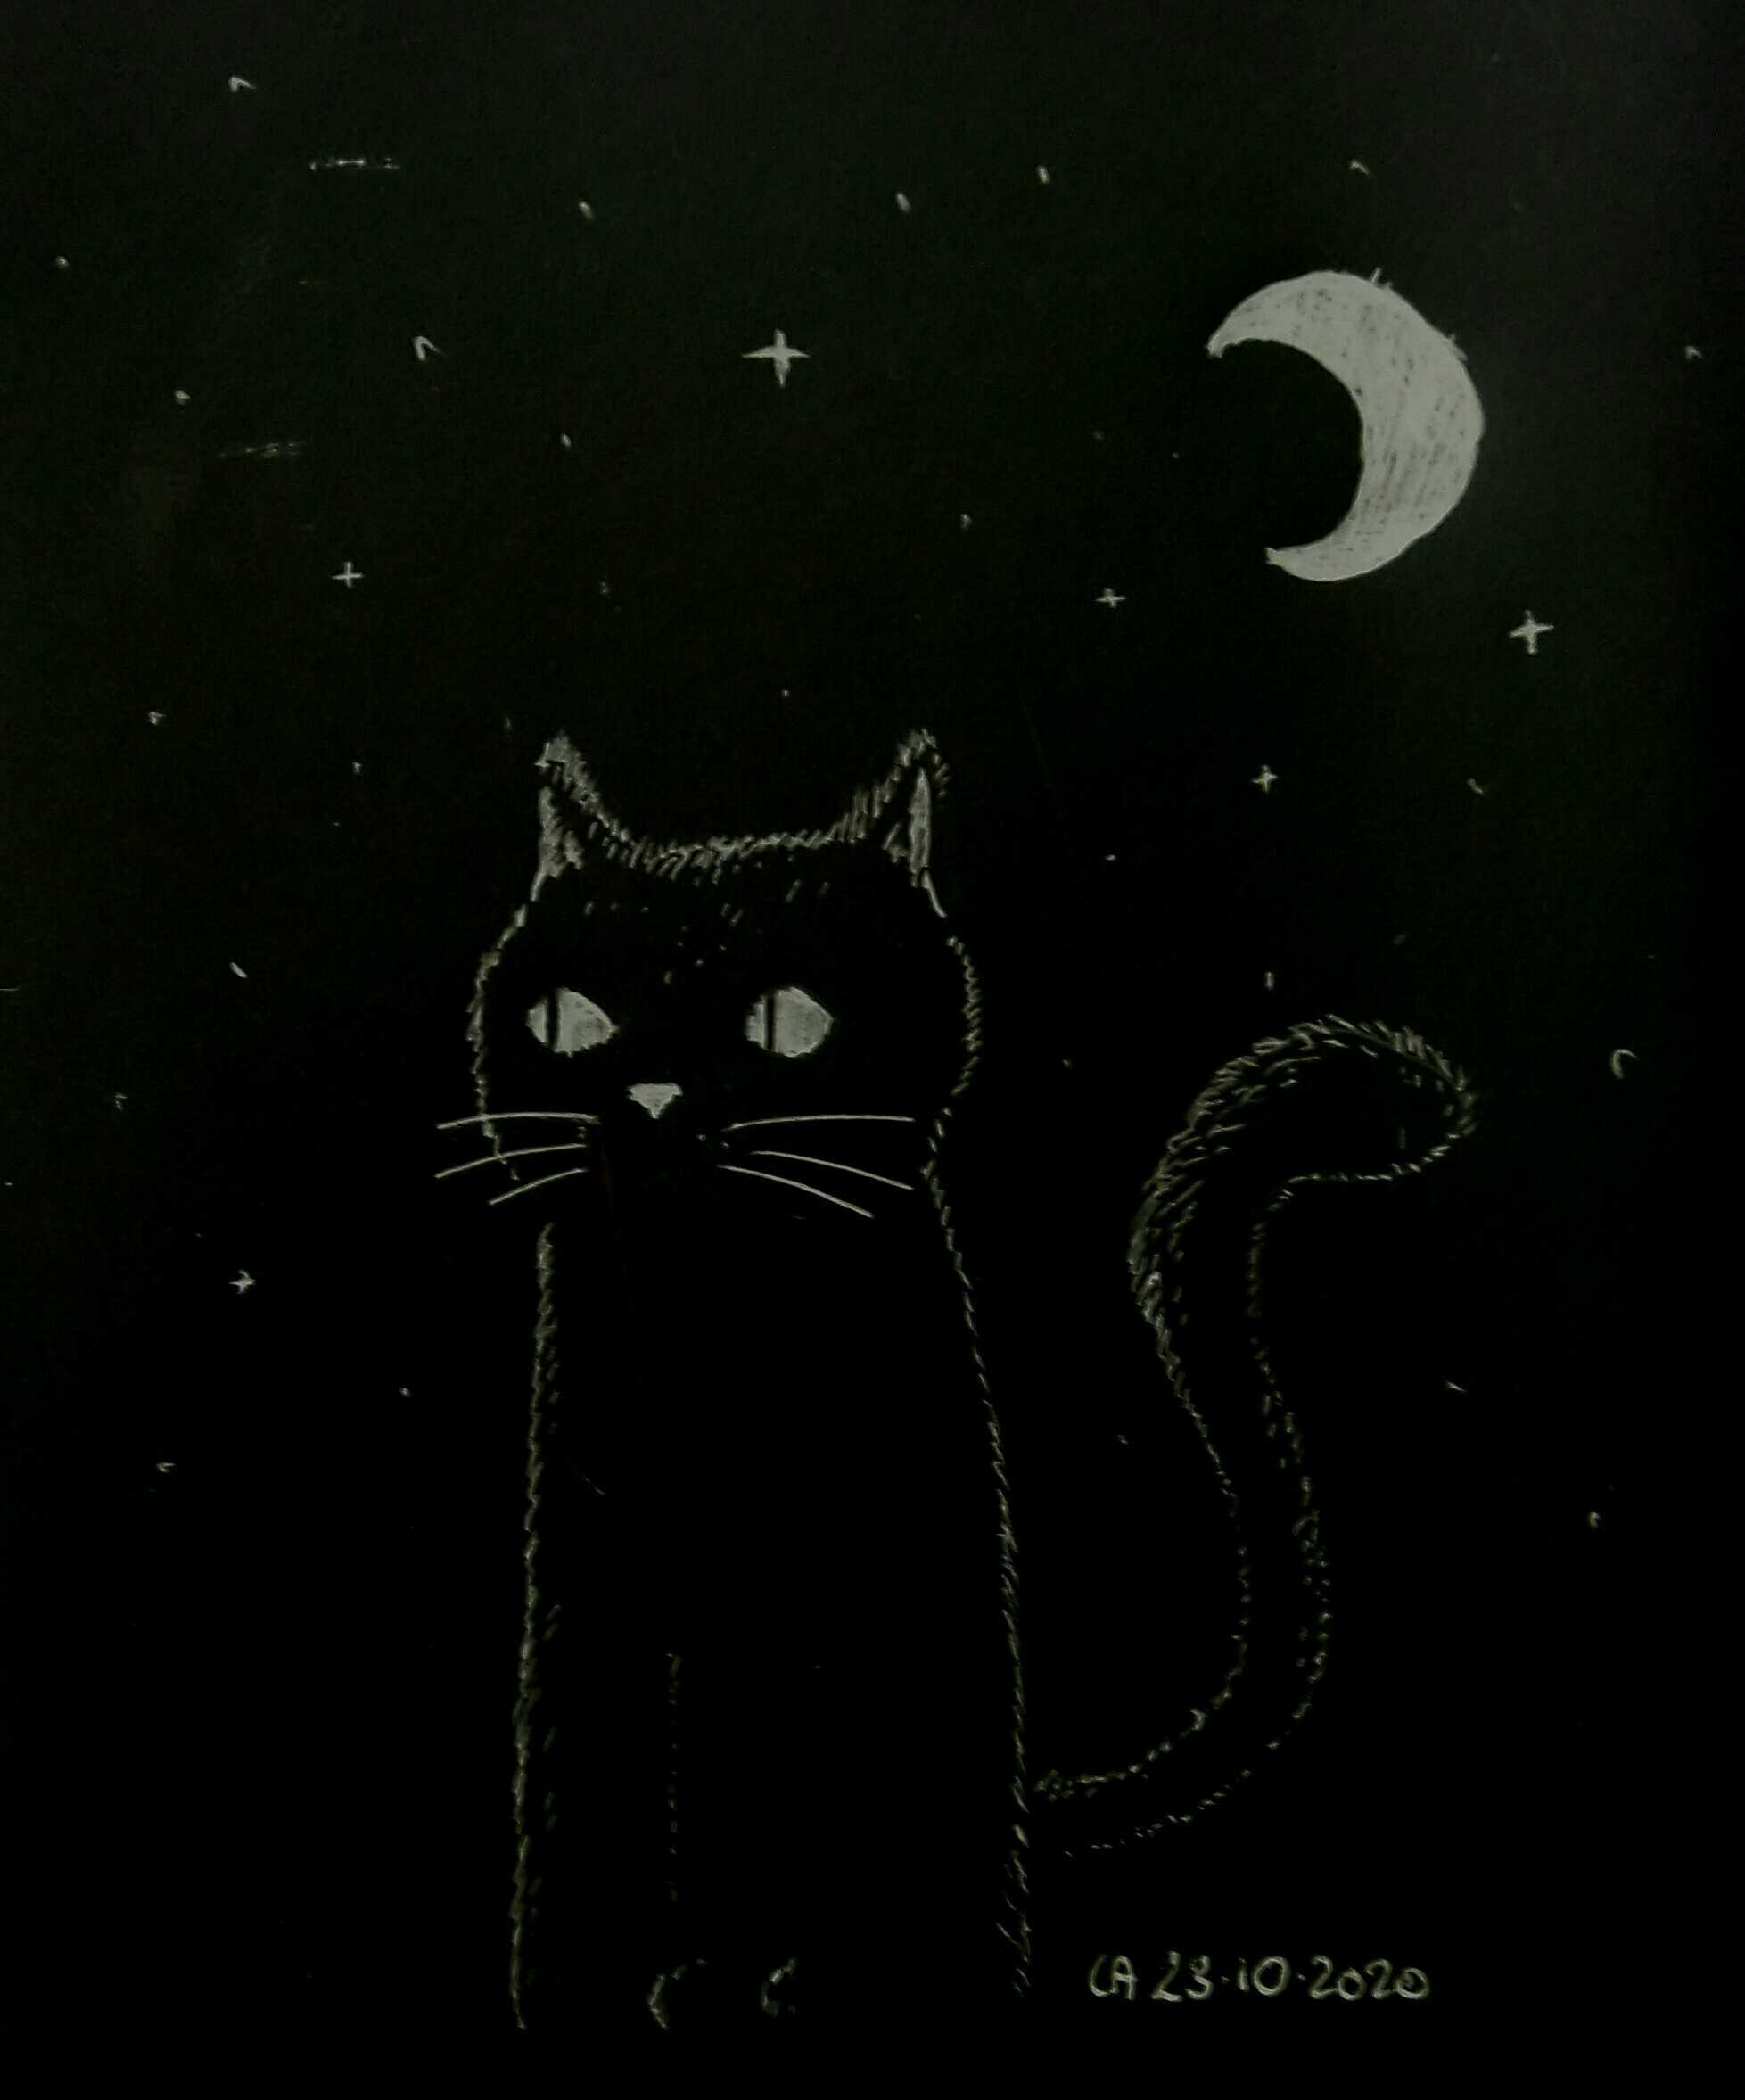 CA 23.10.2020